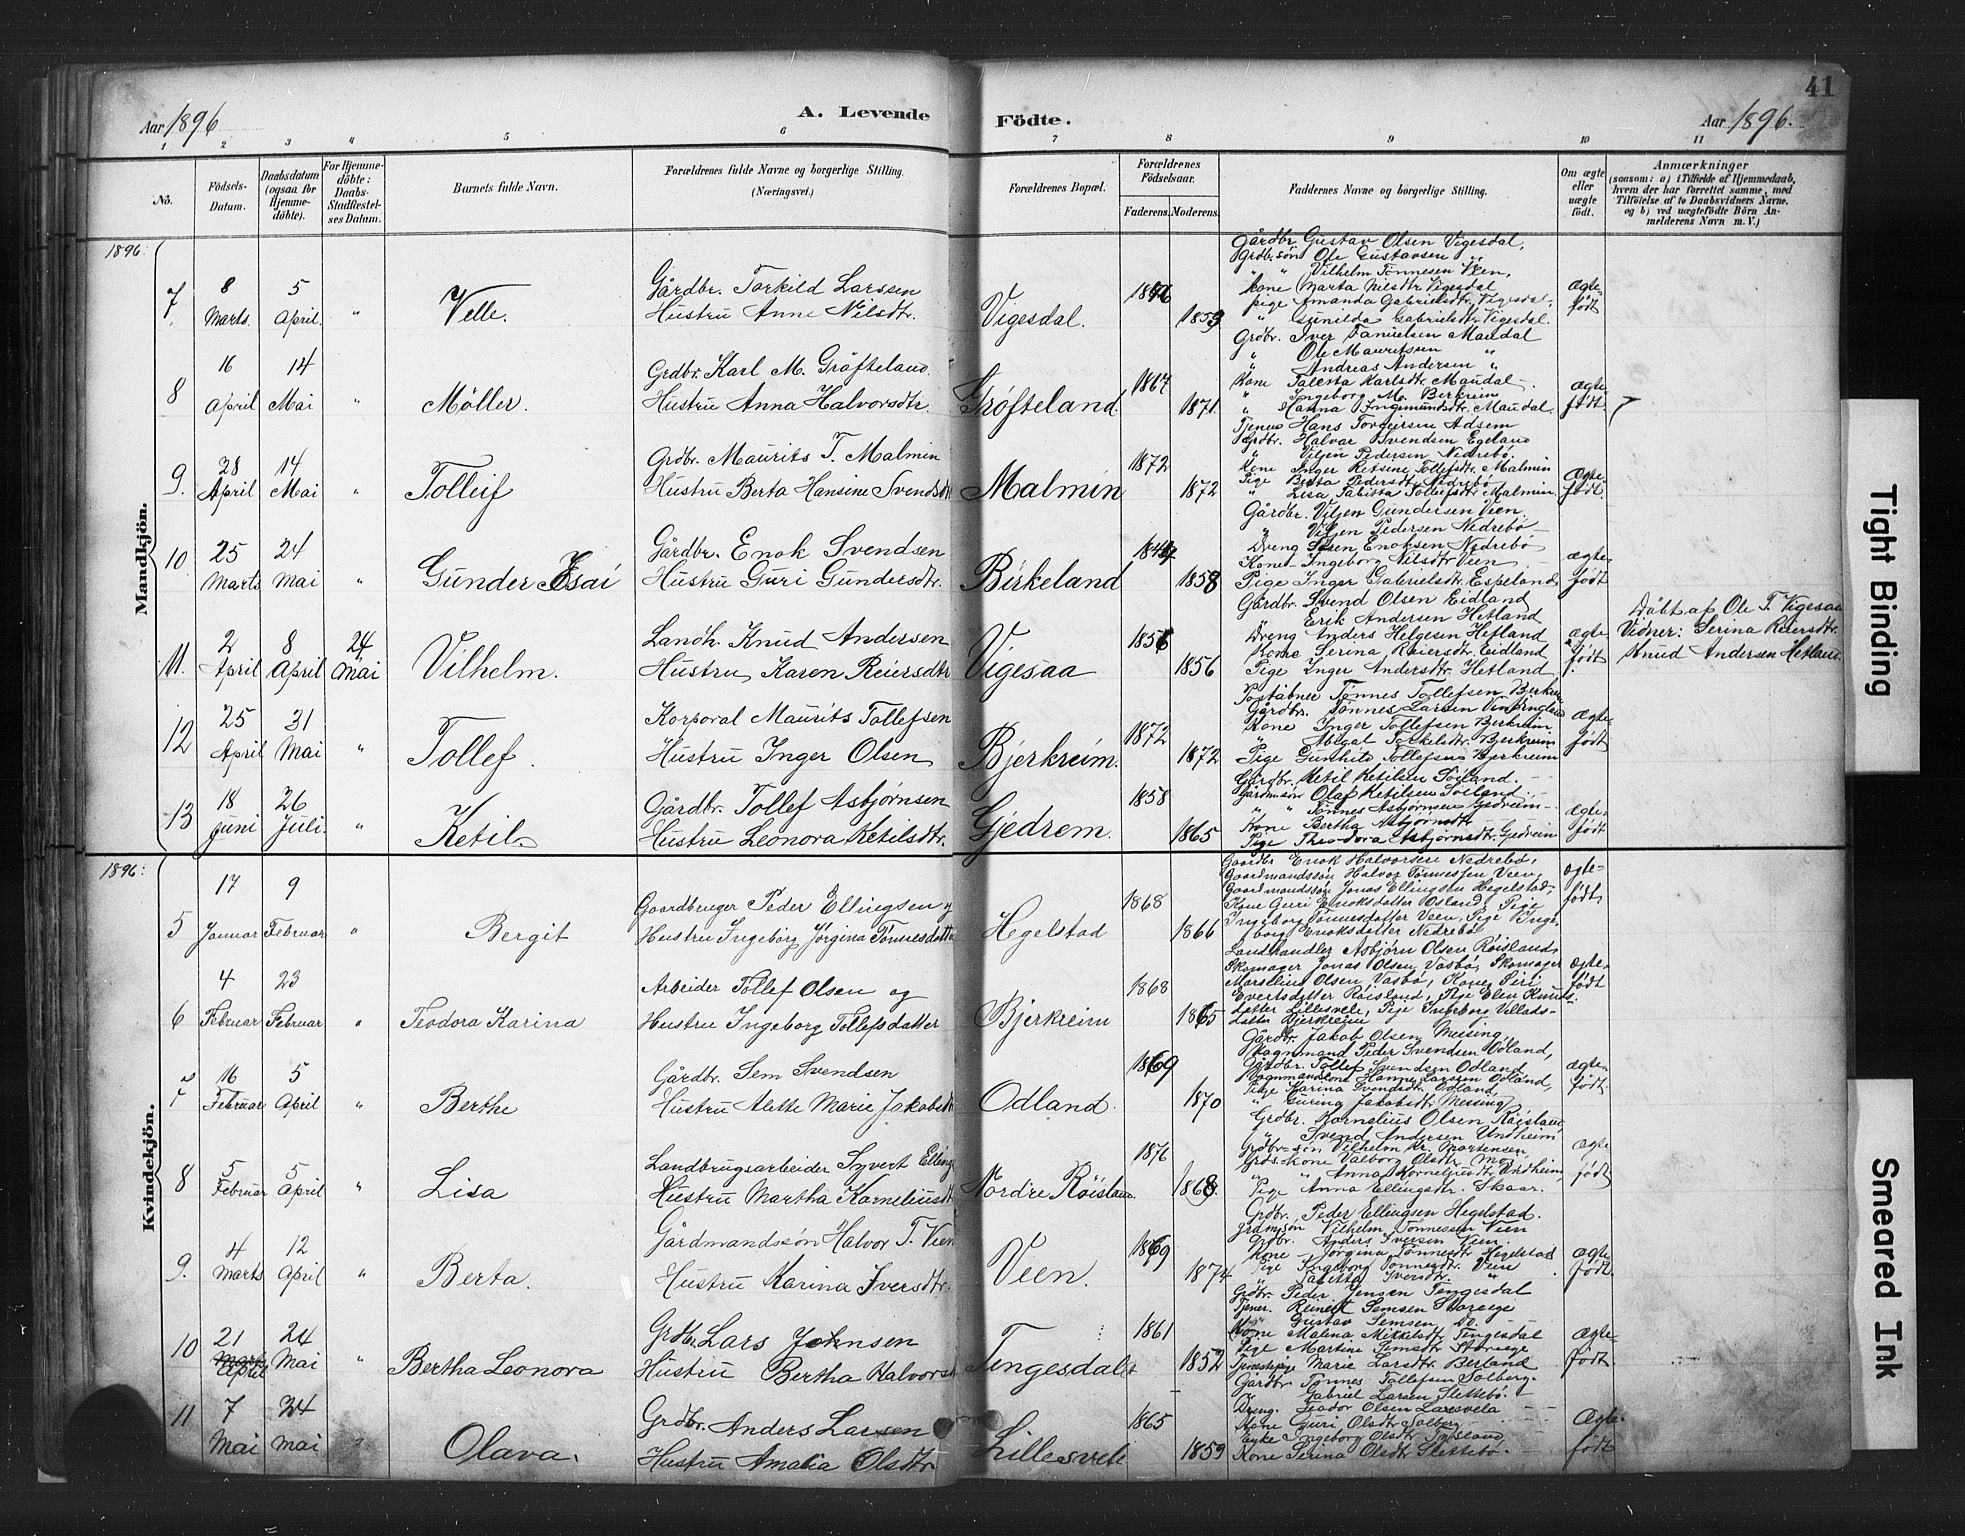 41
Aar 1896
A. Levende
Födte.
Aar 1896.
1 2 3 4 5 6 7 8 9 10 11
No.
Födsels-Datum.
Daabsdatum (ogsaa for Hjemme-döbte).
For Hjemme-döbte: Daabs-Stadfæstel-ses Datum.
Barnets fulde Navn.
Forældrenes fulde Navne og borgerlige Stilling. (Næringsvei.)
Forældrenes Bopæl.
Forældrenes Födselsaar.
Faderens. Moderens.
Faddernes Navne og borgerlige Stilling.
Om ægte eller uægte födt.
Anmærkninger
(saasom: a) i Tilfælde af Hjemmedaab,
hvem der har forrettet samme, med
Tilföielse af to Daabsvidners Navne.
og b) ved uægtefödte Börn An-
melderens Navn m. V.)
Mandkjön.
1896:
7
8 Marts.
5 April.
"
Velle.
Gårdbr. Torkild Larssen
Hustru Anne Nilsdtr.
Vigesdal.
1846
1853
Gårdbr. Gustav Olsen Vigesdal,
Grdb.søn Ole Gustavsen "
" " Vilhelm Tønnesen Veen,
Kone Marta Nilsdtr Vigesdal
Pige Amanda Gabrielsdtr. Vigesdal.
" Gunilda Gabrielsdtr. Vigesdal.
ægte-født
8
16 April
14 Mai
"
Møller.
Grdbr. Karl M. Grøfteland.
Hustru Anna Halvorsdtr.
Grøfteland.
1867
1871.
Grdbr. Iver Tanuelsen Maudal
" Ole Mauritsen "
" Andreas Andersen "
Kone Karlsdtr. Maudal
" Ingeborg M. Berkreim
" Hanna Ingemundsdtr. Maudal.
ægte født.
9.
28 April
14 Mai
"
Tolleif
Grdbr. Maurits T. Malmin
Hustru Berta Hansine Svendsdt
Malmin
1872
1872
Tjener Hans Torgeirsen Adsem
Grdbr. Halvar Svendsen Egeland
" Viljen Pedersen Nedrebø.
Kone Inger Retsine Tollefsdtr. Malmin
Pige Berta Pedersdtr. Nedrebø
" Lisa Tabitta Tollefsdtr. Malmin
Ægte-født.
10
25 Marts
24 Mai
"
Gunder Esai
Gårdbr. Enok Svendsen
Hustru Guri Gundersdtr.
Birkeland
1858
Gårdbr. Viljen Gundersen Veen.
" Viljen Pedersen Nedrebø
Dreng Enoksen Nedrebø
Kone Ingeborg Nilsdtr Veen
Pige Inger Gabrielsdtr. Espeland
ægte-født
11.
2 April
8 April
24 Mai
Vilhelm.
Landh. Knud Andersen
Hustru Karen Reiersdtr
Vigesaa
1856
1856
Gårdbr. Svend Olsen Eidland
" Erik Andersen Hetland
Dreng Anders Helgesen Hetland
Kone Serina Reiersdtr. Eidland
Pige Inger Andersdtr. Hetland
ægte født
Døbt af Ole T. Vigesaa
Vidner: Serina Reiersdtr.
Knud Andersen Hetland.
12
25 April
31 Mai
"
Tollef.
Korporal Maurits Tollefsen
Hustru Inger Olsen
Bjerkreim.
1872
1872
Poståbner Tønnes Tollefsen Bjerkreim
Gårdbr. Tønnes Larsen
Kone Inger Tollefsen Bjerkreim
" Abigal Torkelsdtr. Bjerkreim
Pige Gunhild Tollefsen Bjerkreim
ægte-født
13
18 Juni
26 Juli.
"
Ketil
Gårdbr. Tollef Asbjørnsen
Hustru Leonora Ketilsdtr.
Gjedrem.
1858
1865
Gårdbr. Ketil Ketilsen Søiland.
Gårdm.søn Olaf Ketilsen Søiland.
" " Tønnes Asbjørnsen Gjedreim
Kone Bertha Asbjørnsdtr.
Pige Theodora Asbjørnsdtr. Gjedreim
ægte-født.
Kvindekjön.
1896:
5
17 Januar
9 Februar
"
Bergit
Gaardbruger Peder Ellingsen og
Hustru Ingeborg Jørgina Tønnesdatter
Hegelstad
1868
1866
Gaardbr Enok Halvorsen Nedrebø,
Gaardmandssøn Halvor Tønnessen Veen,
Gaardmandssøn Jonas Ellingsen Hegelstad,
Kone Guri Enoksdatter Osland, Pige
Ingeborg Tønnesdatter Veen, Pige Inge-
borg Enoksdatter Nedrebø
ægte-født
6
4 Februar
23 Februar
"
Teodora Karina
Arbeider Tollef Olsen og
Hustru Ingeborg Tollefsdatter
Bjerkreim
1868
1865
Landhandler Asbjørn Olsen Røisland,
Skomager Jonas Olsen Vasbø, Skomager
Marselius Olsen Vasbø, Kone Siri
Evertsdatter Røisland, Pige Elen Knuds-
datter Lillesvele, Pige Ingeborg Villads-
datter Bjerkreim
ægte-født
7
16 Februar
5 April
"
Berthe
Gårdbr. Sem Svendsen
Hustru Alette Marie Jakobsdt
Odland.
1869
1870
Gårdbr. Jakob Olsen Meising,
Vognmand Peder Svendsen Odland,
Gårdbr. Tollef Svendsen Odland
Vognmandkone Hanne Larssen Odland,
Pige Karina Svendsdtr. Odland
" Gurina Jakobsdtr. Meising
ægte født.
8
5 Februar
5 April
"
Lisa
Landbrugsarbeider Syvert Elling
Hustru Martha Korneliusdt
Nordre Røisland
1876
1868.
Grdbr. Kornelius Olsen Røisland
" Svend Andersen Undheim
Grdbr.søn Vilhelm Kr. Martensen
Grds.kone Valborg Olsdtr. Moi
" " Anna Korneliusdtr. Undheim,
Pige Anna Ellingsdtr. Skaar.
ægte født
9.
4 Marts
12 April
"
Berta.
Gårdmandssøn Halvor T. Veen
Hustru Karina Iversdtr.
Veen.
1869
1874
Grdbr. Peder Ellingsen Hegelstad.
Grdm.søn Vilhelm Tønnessen Veen
Grdbr. Anders Iversen Veen.
Kone Jørgina Tønnesdtr. Hegelstad
Pige Ingeborg Tønnesdtr. Veen
" Tabitta Iversdtr. "
Ægte født.
10
21 April
24 Mai
"
Bertha Leonora
Grdbr. Lars Johnsen
Hustru Bertha Halvorsd
Tengesdal
1861
1852
Grdbr. Peder Jensen Tengesdal
Tjener. Reinert Semsen Storsege
" Gustav Semsen Do.
Kone Malena Mikkelsdtr. Tengesdal
Pige Martine Semsdtr. Storsege
Tjenestepige Marie Larsdtr. Berland
Ægte-født.
11
7 Mai
24 Mai
Olava.
Grdbr. Anders Larsen
Hustru Amalia Olsdtr
Lillesvele
1865
1859
Gårdbr. Tønnes Tollefsen Solberg.
" Gabriel Larsen Slettebø
Dreng. Teodor Olsen Larsvela
Kone Guri Olsdtr. Solberg
Enke Ingeborg Olsdtr
Kone Serina Olsdtr. Slettebø.
Ægte-født
Tight Binding
Smeared Ink